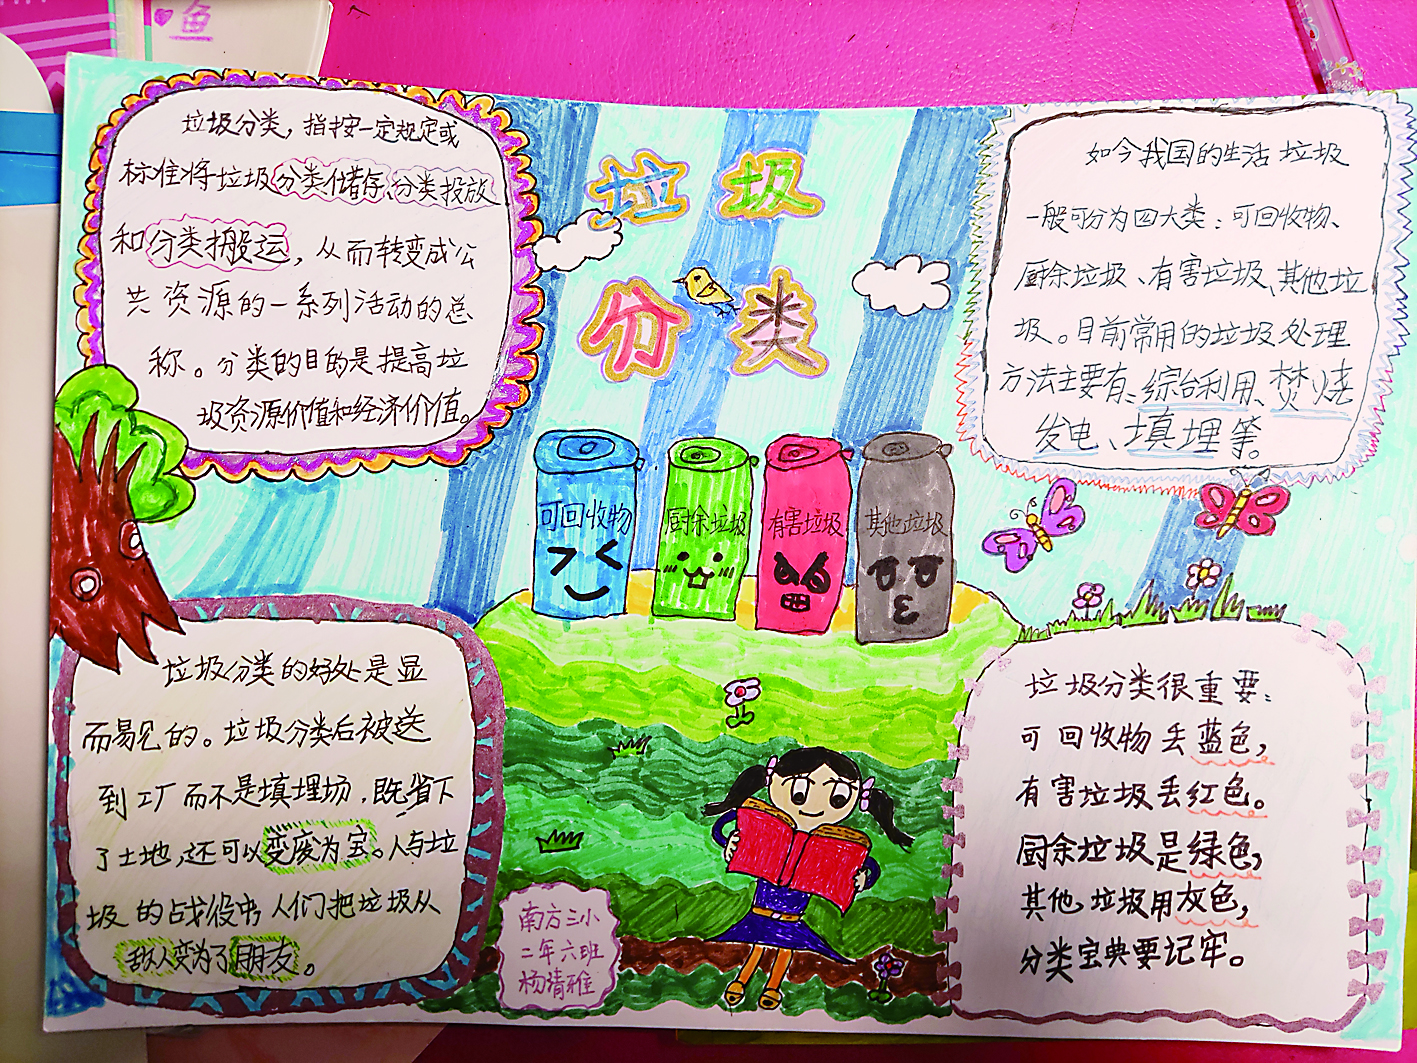 鱼
垃圾分类，指按一定规定或
标准将垃圾分类储存、分类投放
和分类搬运，从而转变成公
共资源的一系列活动的总
称。分类的目的是提高垃
圾资源价值和经济价值。
垃圾
分类
如今我国的生活垃圾
一般可分为四大类：可回收物、
厨余垃圾、有害垃圾、其他垃
圾。目前常用的垃圾处理
方法主要有、综合利用、焚烧
发电、填埋等。
可回收物
厨余垃圾
有害垃圾
其他垃圾
垃圾分类的好处是显
而易见的。垃圾分类后被送
到工厂而不是填埋场，既省下
了土地，还可以变废为宝。人与垃
圾的战役中，人们把垃圾从
敌人变为了朋友。
南方三小
二年六班
杨清雅
垃圾分类很重要：
可回收物丢蓝色，
有害垃圾丢红色。
厨余垃圾是绿色，
其他垃圾用灰色，
分类宝典要记牢。